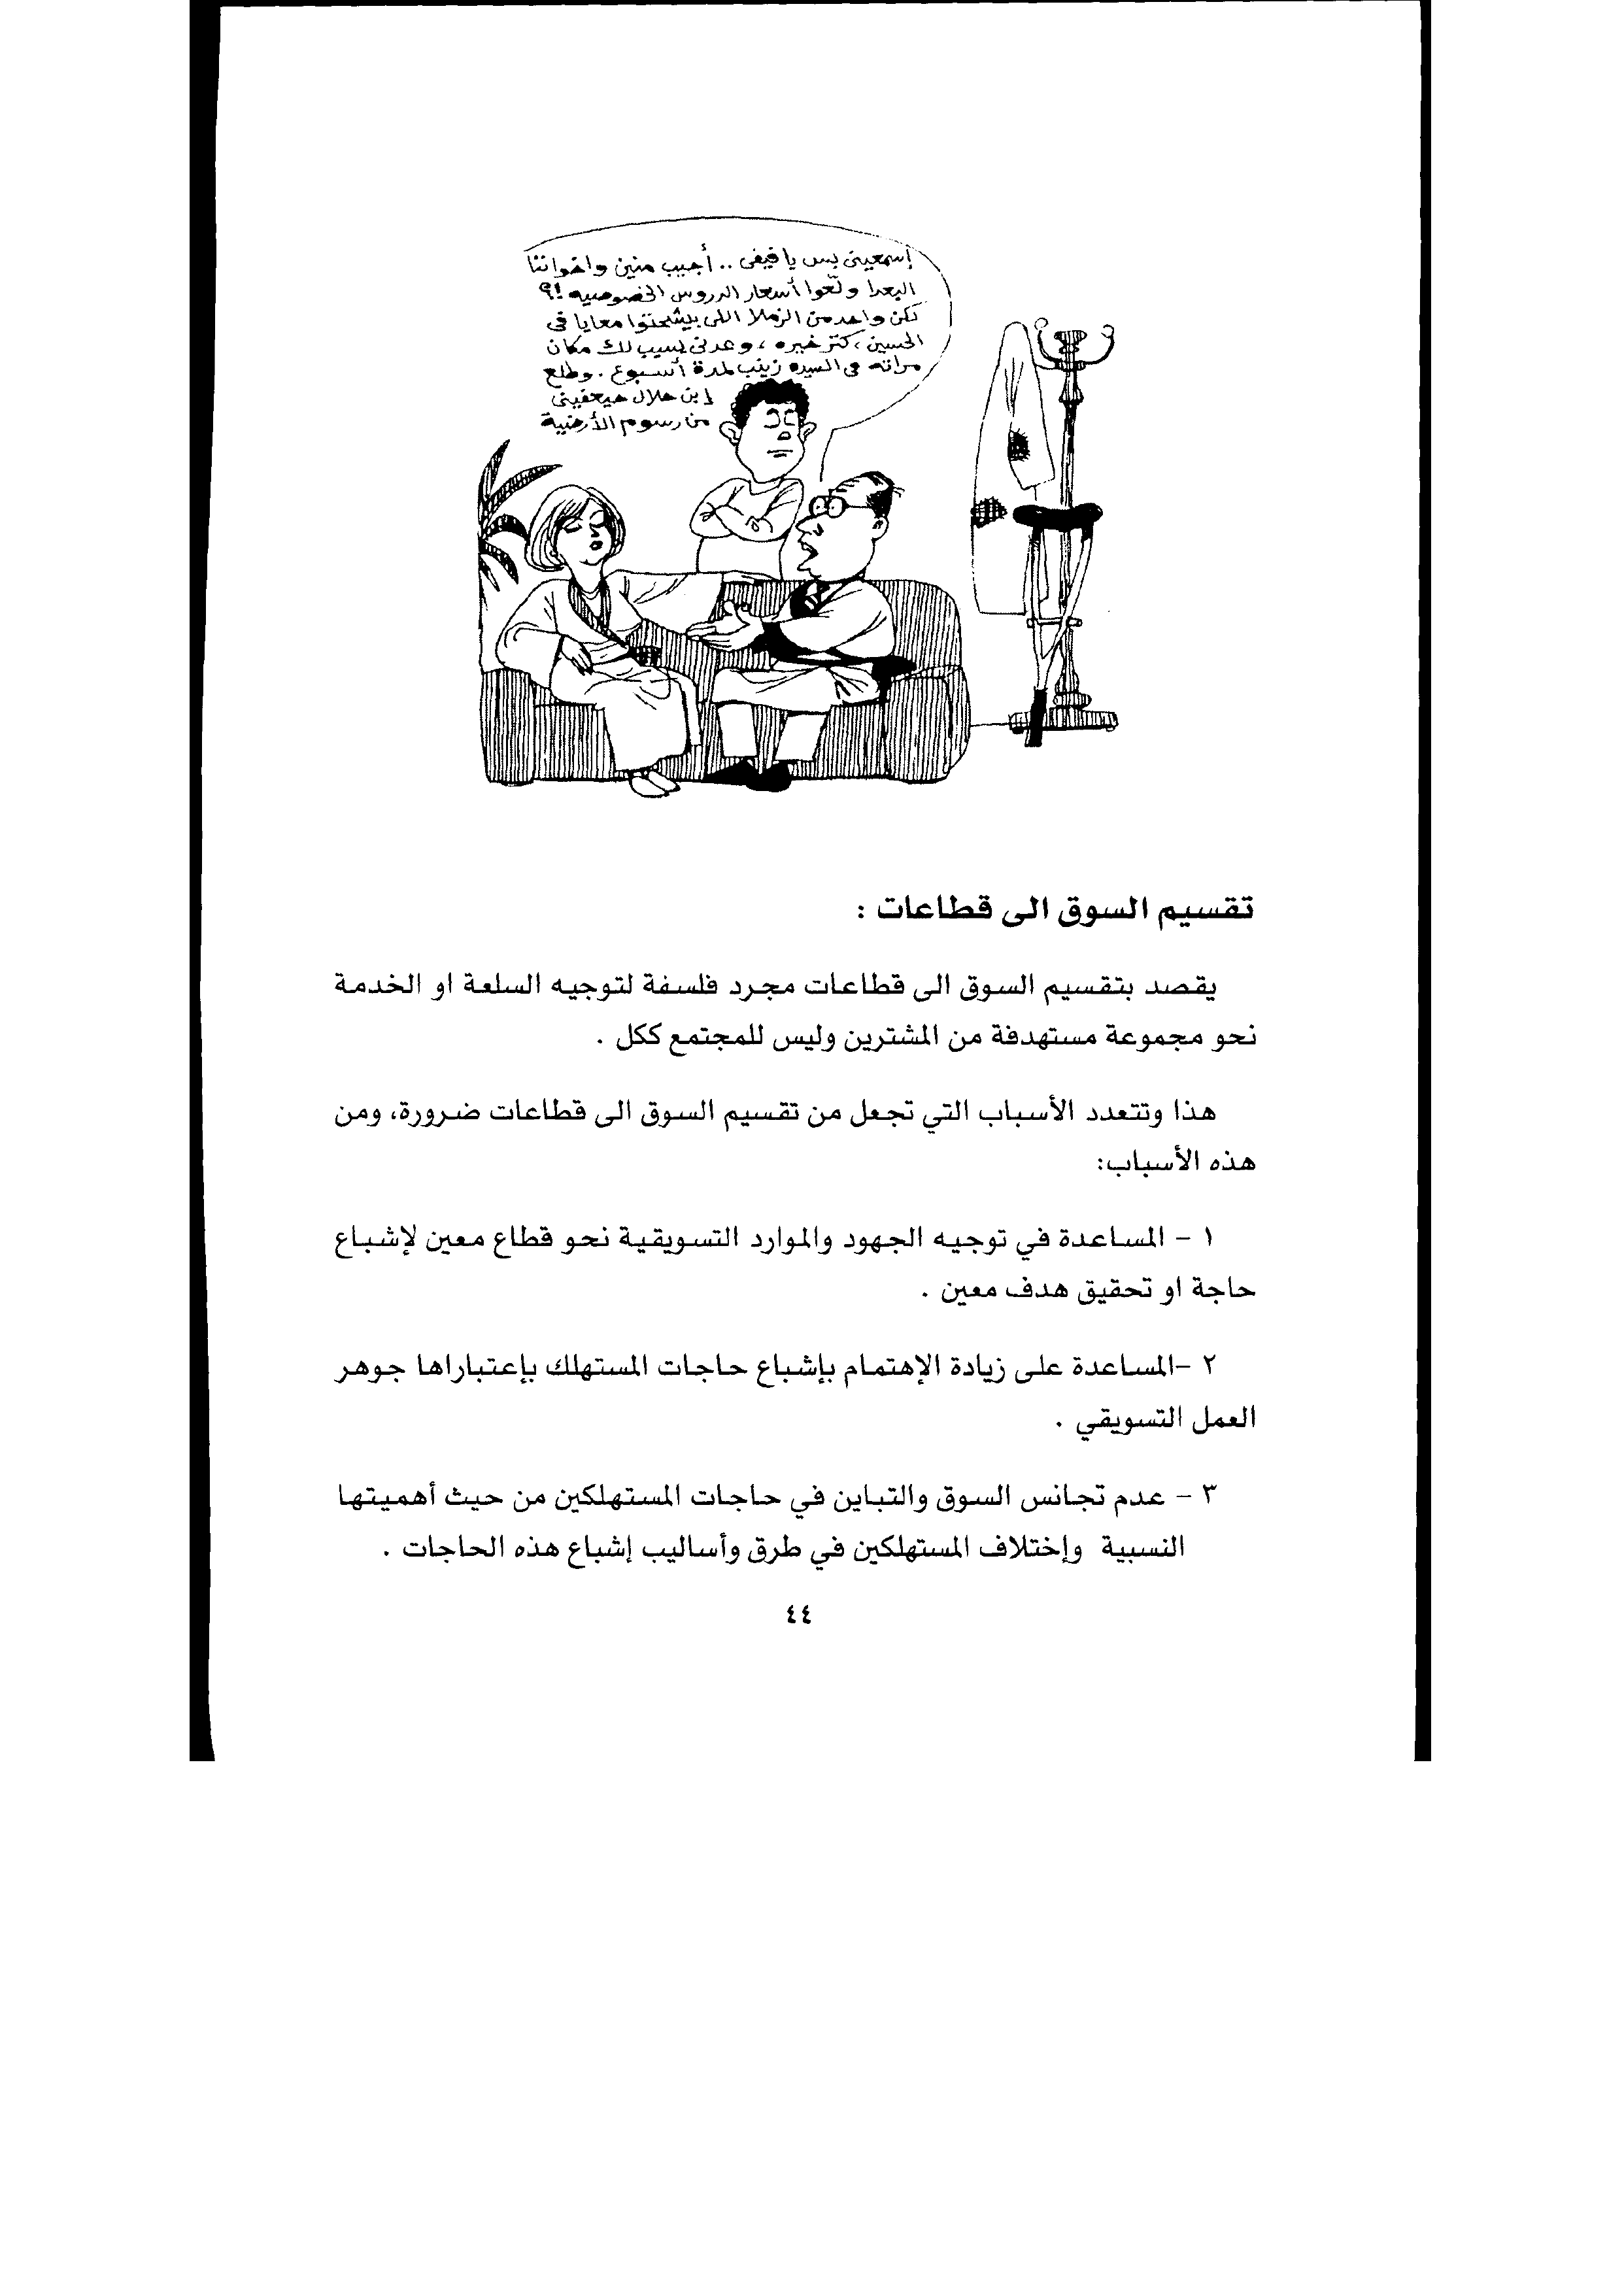 إسمعينى بس يا فيفى .. أجيب منين واخواتنا
البعدا ولّعوا أسعار الدروس الخصوصيه !؟
لكن واحد من الزملا اللى بيشحتوا معايا فى
الحسين ، كتر خيره ، وعدنى يسيب لك مكان
مراته فى السيده زينب لمدة أسبوع . وطلع
إبن حلال هيعفينى
من رسوم الأرضية
تقسيم السوق الى قطاعات :
يقصد بتقسيم السوق الى قطاعات مجرد فلسفة لتوجيه السلعة او الخدمة
نحو مجموعة مستهدفة من المشترين وليس للمجتمع ككل .
هذا وتتعدد الأسباب التي تجعل من تقسيم السوق الى قطاعات ضرورة، ومن
هذه الأسباب:
١ - المساعدة في توجيه الجهود والموارد التسويقية نحو قطاع معين لإشباع
حاجة او تحقيق هدف معين .
٢ -المساعدة على زيادة الإهتمام بإشباع حاجات المستهلك بإعتباراها جوهر
العمل التسويقي .
٣ - عدم تجانس السوق والتباين في حاجات المستهلكين من حيث أهميتها
النسبية وإختلاف المستهلكين في طرق وأساليب إشباع هذه الحاجات .
٤٤